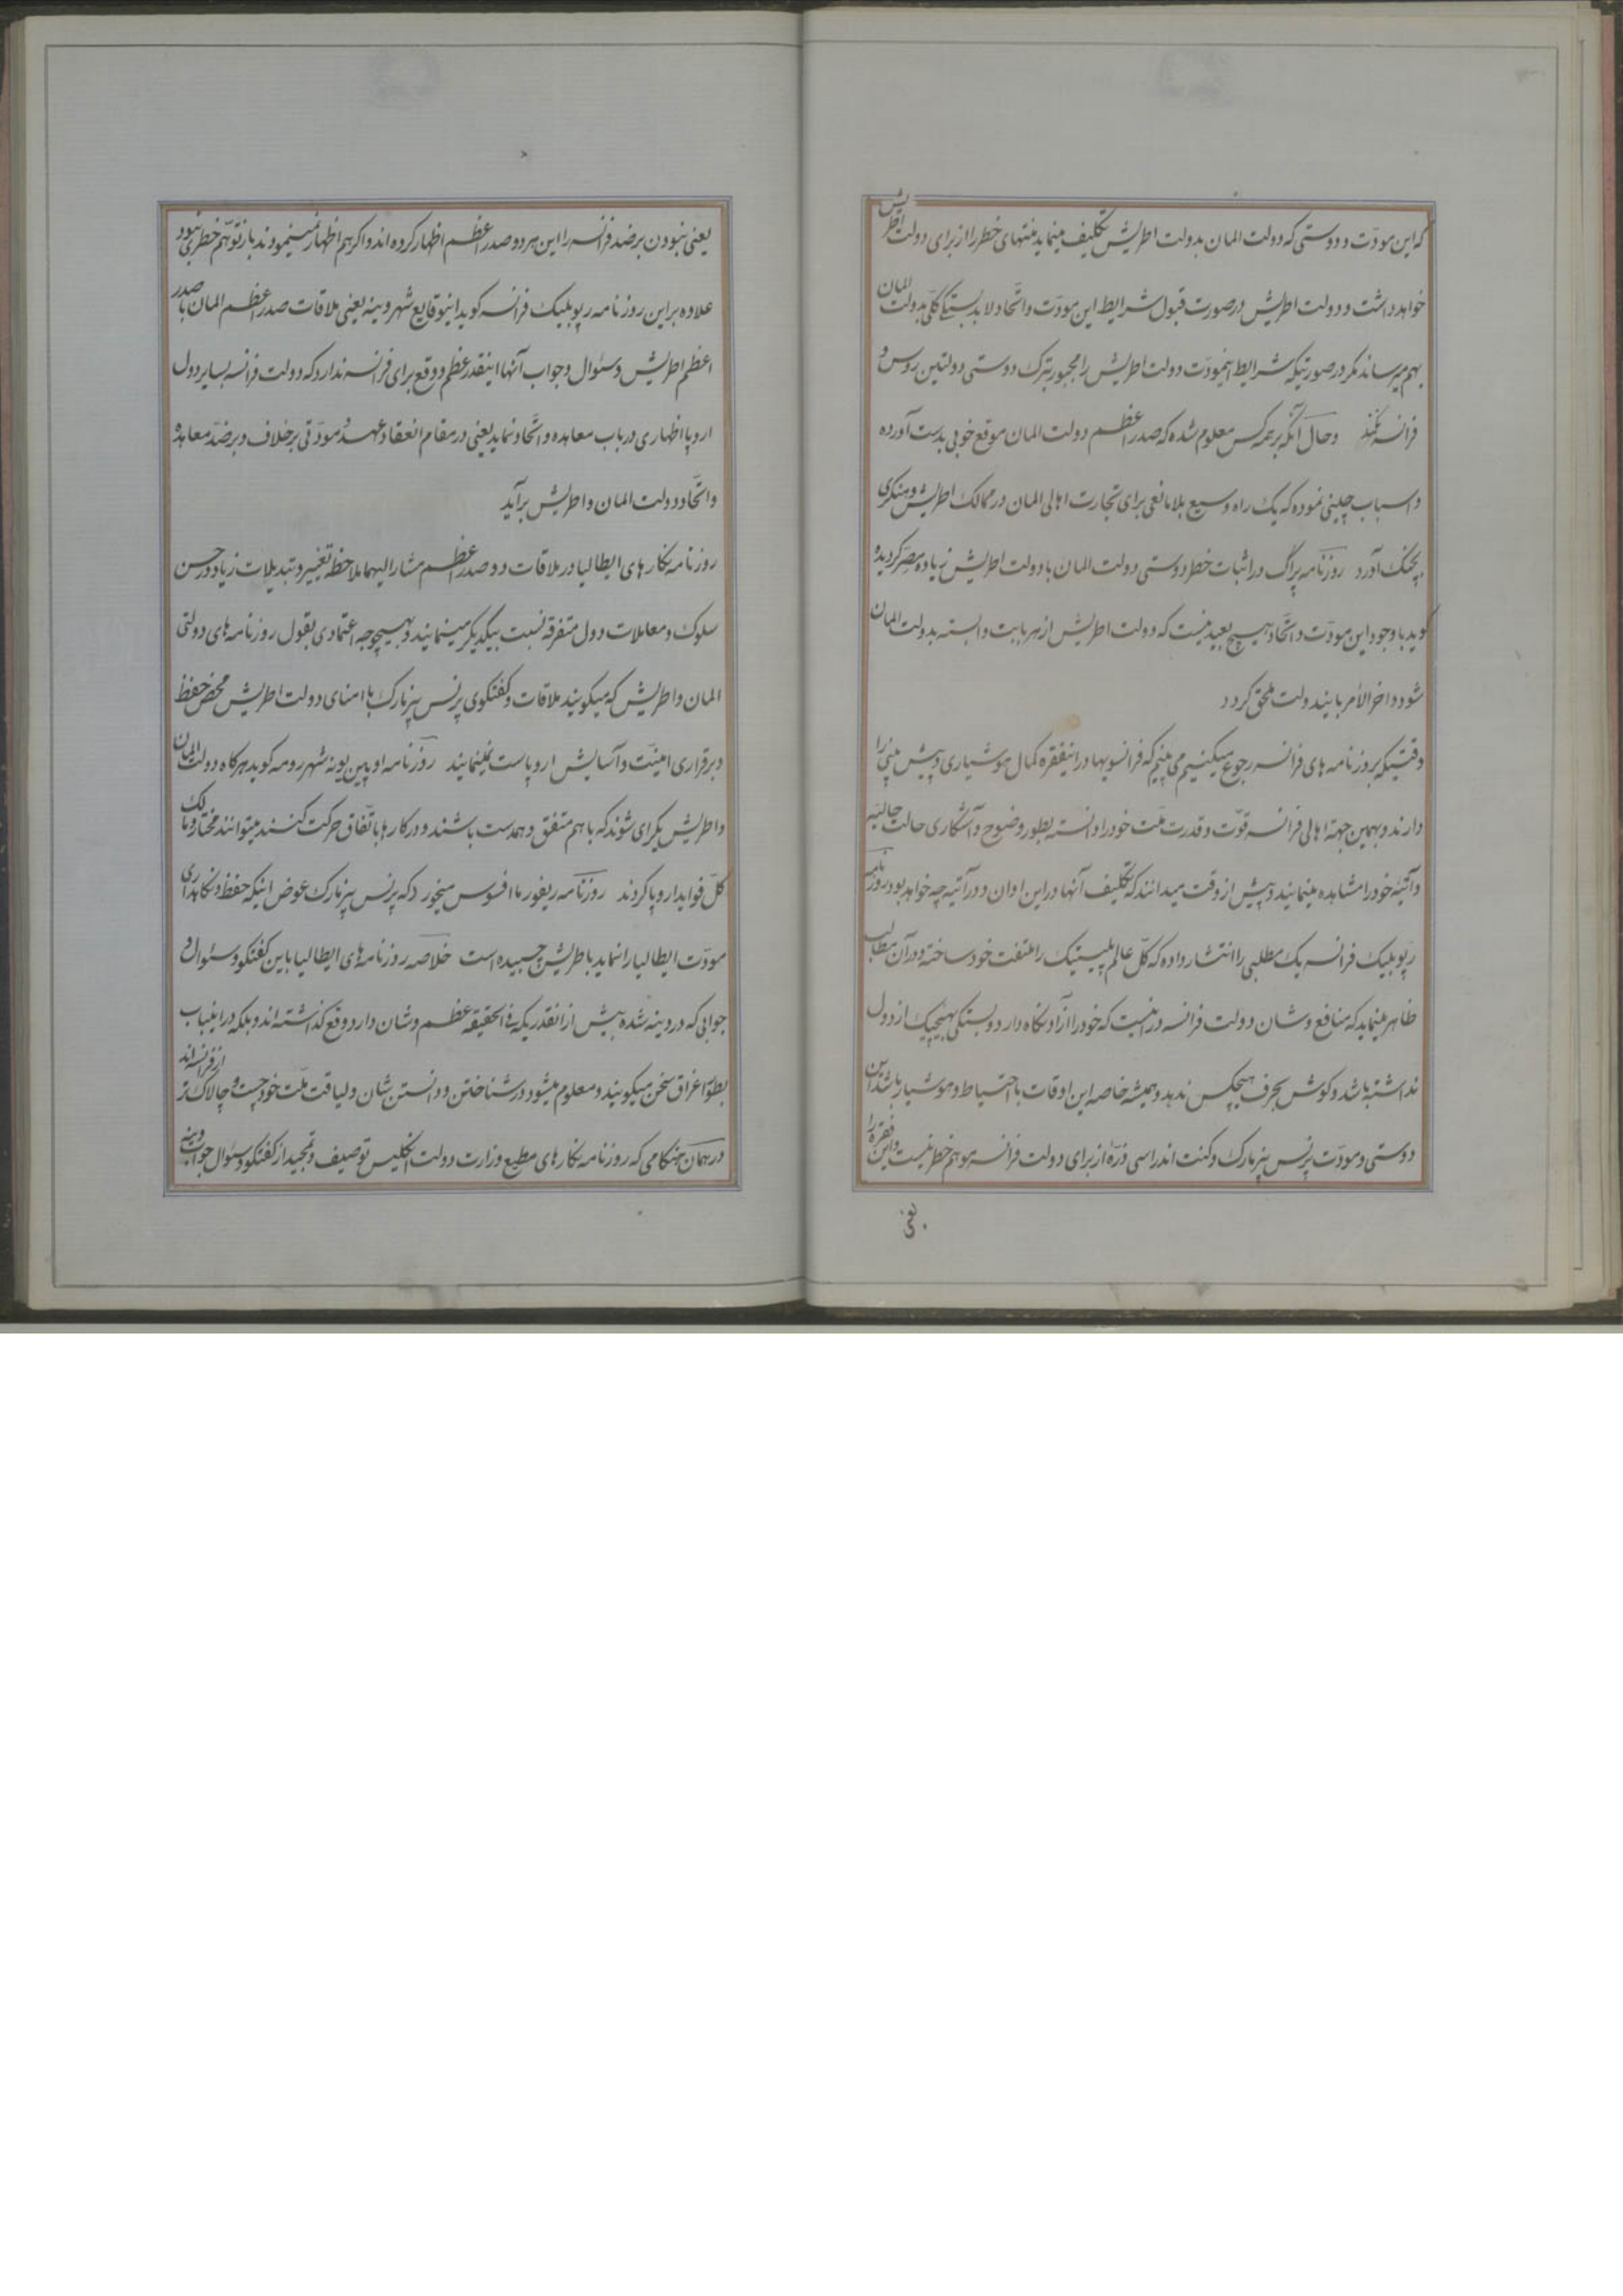 که این مودّت و دوستی که دولت المان بدولت اطریش تکلیف مینماید منتهای خطر را از برای دولت اطریش
خواهد داشت و دولت اطریش در صورت قبول شرایط این مودّت و اتّحاد لابد بستگی کلّی بدولت المان
بهم میرساند مگر در صورتیکه شرایط اینمودّت دولت اطریش را مجبور بترک دوستی دولتین روس و
فرانسه نکند و حال آنکه بر همه کس معلوم شده که صدر اعظم دولت المان موقع خوبی بدست آورده
و اسباب چینی نموده که یک راه وسیع بلامانعی برای تجارت اهالی المان در ممالک اطریش و هنگری
بچنگ آورد روزنامه پراگ در اثبات خطر دوستی دولت المان با دولت اطریش زیاده مصرّ گردیده
گوید با وجود این مودّت و اتّحاد هیچ بعید نیست که دولت اطریش از هر بابت وابسته بدولت المان
شود و اخر الأمر باین دولت ملحق گردد
وقتیکه بروزنامه های فرانسه رجوع میکنیم می بینیم که فرانسویها در اینفقره کمال هوشیاری و پیش بینی را
دارند و بهمین جهة اهالی فرانسه قوّت و قدرت ملّت خود را دانسته بطور وضوح و آشکاری حالت حالیّه
و آتیّه خود را مشاهده مینمایند و پیش از وقت میدانند که تکلیف آنها در این اوان و در آتیّه چه خواهد بود روزنامه
رپوبلیک فرانسه یک مطلبی را انتشار داده که کلّ عالم پلیتیک را ملتفت خود ساخته و در آن مطالب
ظاهر مینماید که منافع و شان دولت فرانسه در اینست که خود را آزاد نگاه دارد و بستگی بهیچیک از دول
نداشته باشد و گوش بحرف هیچکس ندهد و همیشه خاصه این اوقات با احتیاط و هوشیار باشد این
دوستی و مودّت پرنس بیزمارک و کنت اندراسی ذرّهٔ از برای دولت فرانسه موهم خطر نیست و این فقره را
یعنی
یعنی نبودن بر ضد فرانسه را این هر دو صدر اعظم اظهار کرده اند و اگر هم اظهار نمینمودند باز توهّم خطری نبود
علاوه بر این روزنامه رپوبلیک فرانسه گوید اینوقایع شهر وینه یعنی ملاقات صدر اعظم المان با صدر
اعظم اطریش و سئوال و جواب آنها اینقدر عظم و وقع برای فرانسه ندارد که دولت فرانسه بسایر دول
اروپا اظهاری در باب معاهده و اتّحاد نماید یعنی در مقام انعقاد عهد مودّتی بر خلاف و بر ضدّ معاهده
و اتّحاد دولت المان و اطریش برآید
روزنامه نگارهای ایطالیا در ملاقات دو صدر اعظم مشار الیهما ملاحظه تغییر و تبدیلات زیاد در حسن
سلوک و معاملات دول متفرقه نسبت بیکدیگر مینمایند و بهیچوجه اعتمادی بقول روزنامه های دولتی
المان و اطریش که میگویند ملاقات و گفتگوی پرنس بیزمارک با امنای دولت اطریش محض حفظ
و برقراری امنیّت و آسایش اروپاست نمینمایند روزنامه اوپین یونه شهر رومه گوید هر گاه دولت المان
و اطریش یکرای شوند که با هم متفق و همدست باشند و در کارها باتّفاق حرکت کنند میتوانند مختار و مالک
کلّ فواید اروپا گردند روزنامه ریفورما افسوس میخورد که پرنس بیزمارک عوض اینکه حفظ و نگاهداری
مودّت ایطالیا را نماید باطریش چسبیده است خلاصه روزنامه های ایطالیا باین گفتگو و سئوال و
جوابی که در وینه شده بیش از انقدریکه فی الحقیقه عظم و شان دارد وقع گذاشته اند و بلکه در اینباب
بطور اغراق سخن میگویند و معلوم میشود در شناختن و دانستن شان و لیاقت ملّت خود چست و چالاک تر از فرانسه اند
در همان هنگامی که روزنامه نگارهای مطیع وزارت دولت انگلیس توصیف و تمجید از گفتگو و سئوال و جواب وینه